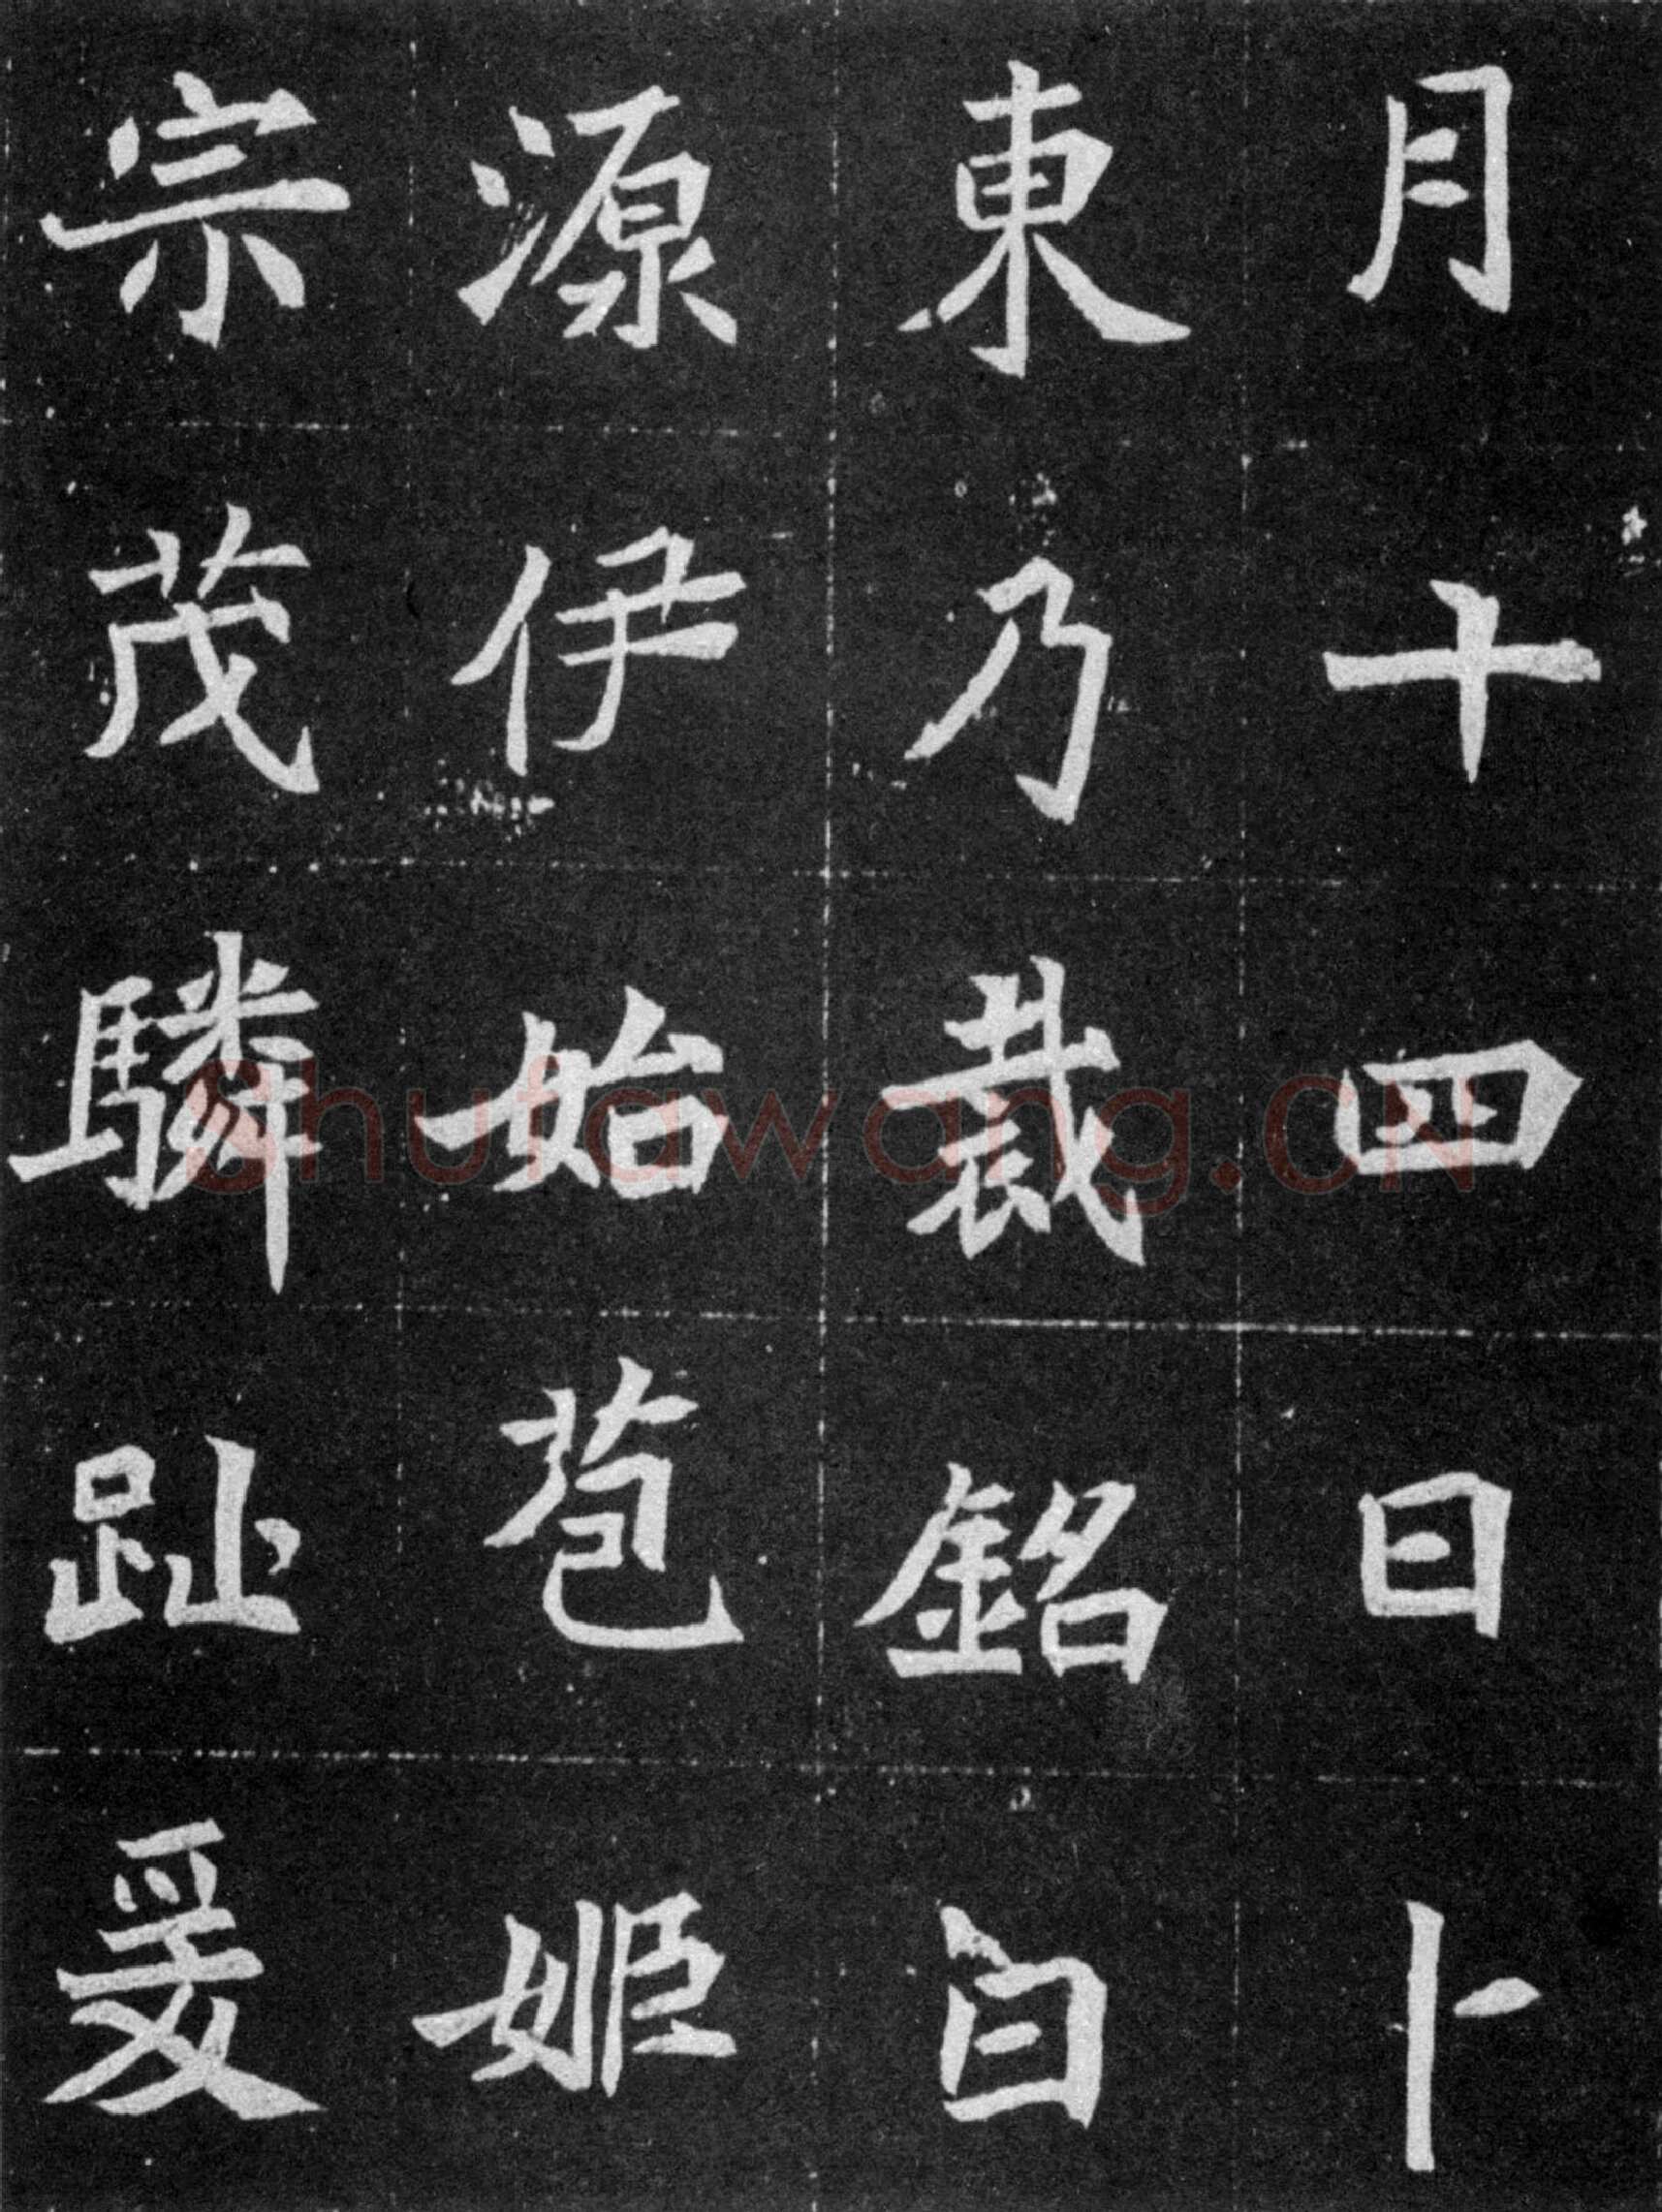 月十四日卜
東乃裁銘曰
源伊始苞姬
宗茂驎趾爰
Shufawang.CN